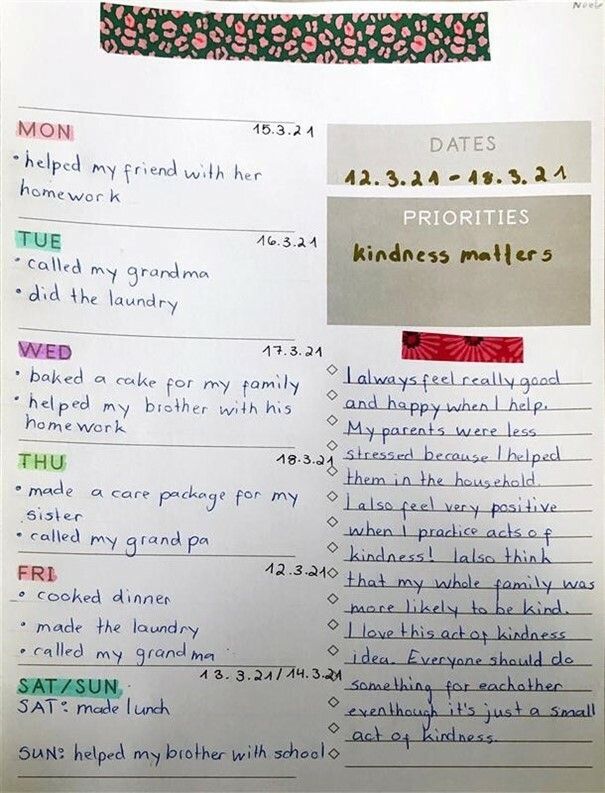 Noele
MON 15.3.21
• helped my friend with her
homework
TUE 16.3.21
• called my grandma
• did the laundry
WED 17.3.21
• baked a cake for my family
• helped my brother with his
homework
THU 18.3.21
• made a care package for my
sister
• called my grandpa
FRI 12.3.21
• cooked dinner
• made the laundry
• called my grandma
13.3.21/14.3.21
SAT/SUN
SAT: made lunch
SUN: helped my brother with school
DATES
12.3.21 - 18.3.21
PRIORITIES
kindness matters
I always feel really good
and happy when I help.
My parents were less
stressed because I helped
them in the household.
I also feel very positive
when I practice acts of
kindness! I also think
that my whole family was
more likely to be kind.
I love this act of kindness
idea. Everyone should do
something for eachother
eventhough it's just a small
act of kindness.